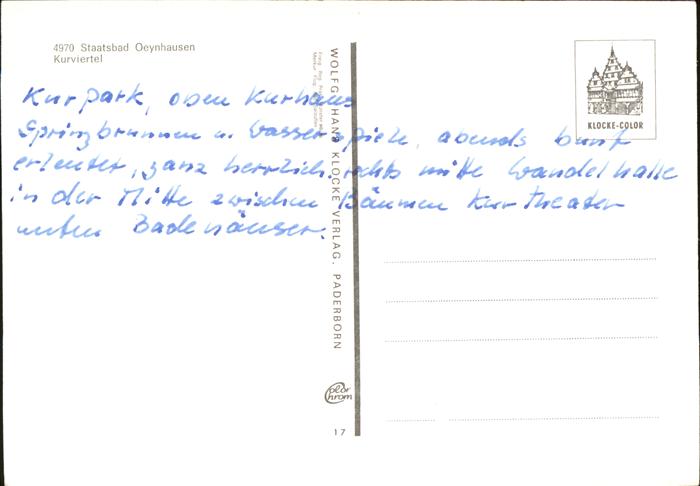 4970 Staatsbad Oeynhausen
Kurviertel
KLOCKE-COLOR
Kurpark, oben Kurhaus
Springbrunnen u. Wasserspiele, abends bunt
erleutet, ganz herrlich. rechts mitte Wandelhalle
in der Mitte zwischen Bäumen Kurtheater
unten Badehäuser.
WOLFGANG HANS KLOCKE VERLAG, PADERBORN
Color
chrom
17